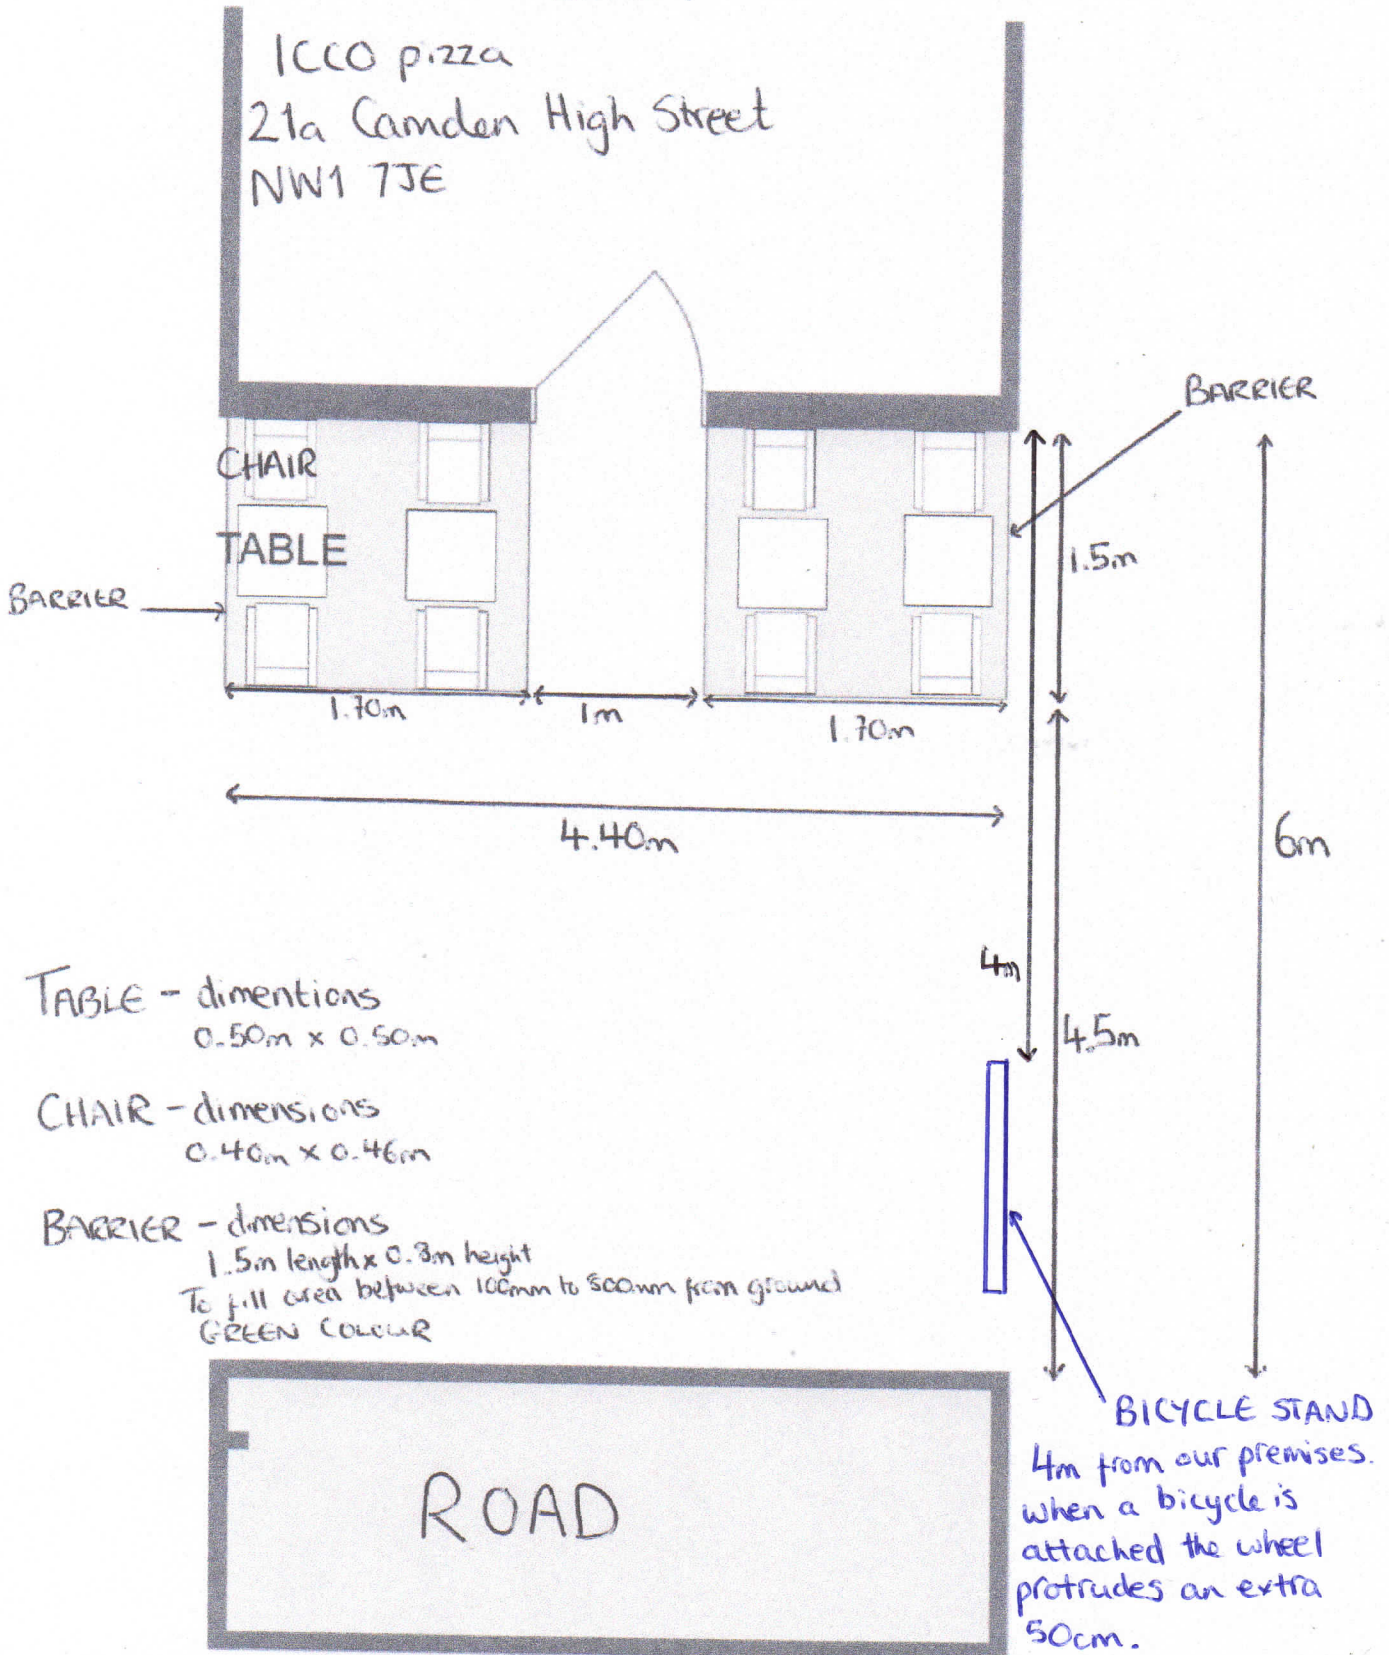 ICCO pizza
21a Camden High Street
NW1 7JE
BARRIER
CHAIR
TABLE
BARRIER
1.5m
1.70m
1m
1.70m
4.40m
6m
4m
4.5m
TABLE - dimentions
0.50m x 0.50m
CHAIR - dimensions
0.40m x 0.46m
BARRIER - dimensions
1.5m length x 0.8m height
To fill area between 100mm to 800mm from ground
GREEN COLOUR
ROAD
BICYCLE STAND
4m from our premises.
when a bicycle is
attached the wheel
protrudes an extra
50cm.